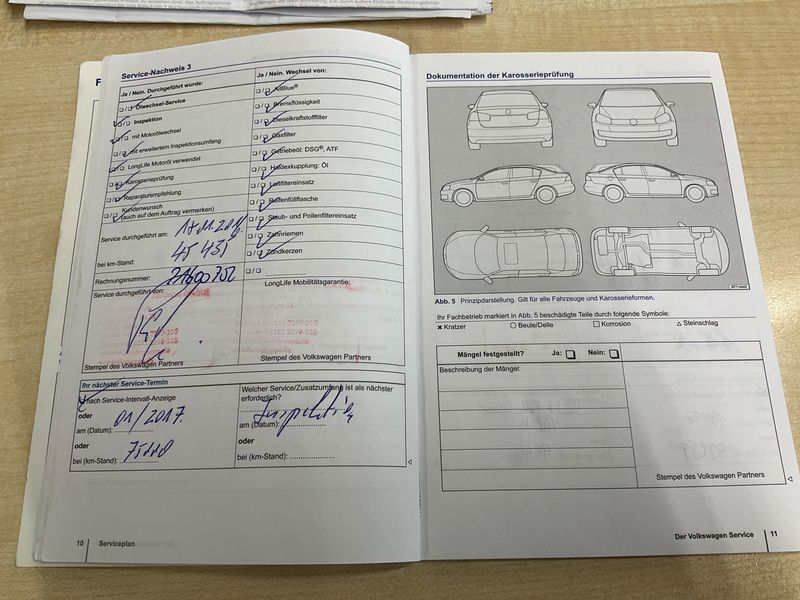 Service-Nachweis 3
Ja / Nein. Durchgeführt wurde:
Ölwechsel-Service
Inspektion
mit Motorölwechsel
mit erweitertem Inspektionsumfang
LongLife Motoröl verwendet
Karosserieprüfung
Reparaturempfehlung
Kundenwunsch
(auch auf dem Auftrag vermerken)
Service durchgeführt am:
bei km-Stand:
Rechnungsnummer:
Service durchgeführt von:
Stempel des Volkswagen Partners
Ja / Nein. Wechsel von:
AdBlue®
Bremsflüssigkeit
Dieselkraftstofffilter
Gasfilter
Getriebeöl: DSG®, ATF
Haldexkupplung: Öl
Luftfiltereinsatz
Reifenfüllflasche
Staub- und Pollenfiltereinsatz
Zahnriemen
Zündkerzen
LongLife Mobilitätsgarantie:
Stempel des Volkswagen Partners
Ihr nächster Service-Termin
nach Service-Intervall-Anzeige
oder
am (Datum): 01/2017.
oder
bei (km-Stand):
Welcher Service/Zusatzumfang ist als nächster
erforderlich?
Inspektion
am (Datum):
oder
bei (km-Stand):
10 Serviceplan
Dokumentation der Karosserieprüfung
Abb. 5 Prinzipdarstellung. Gilt für alle Fahrzeuge und Karosserieformen.
Ihr Fachbetrieb markiert in Abb. 5 beschädigte Teile durch folgende Symbole:
× Kratzer ○ Beule/Delle □ Korrosion △ Steinschlag
Mängel festgestellt? Ja: □ Nein: □
Beschreibung der Mängel:
Stempel des Volkswagen Partners
Der Volkswagen Service 11